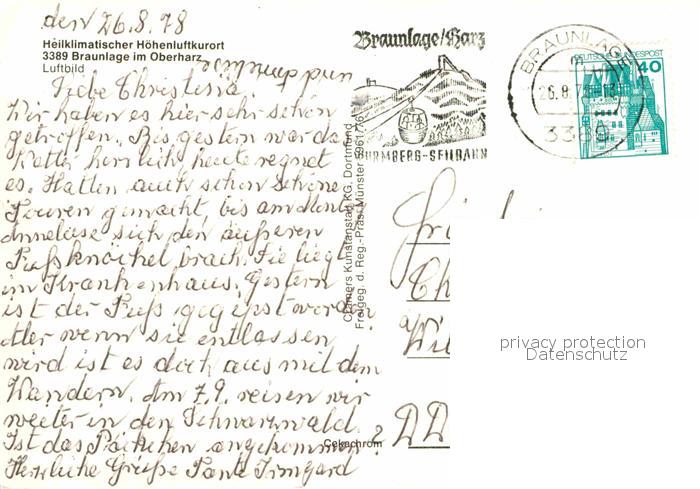 den 26.8.78
Heilklimatischer Höhenluftkurort
3389 Braunlage im Oberharz
Luftbild
Liebe Christina
und
Wir haben es hier sehr schön
getroffen. Bis gestern war das
Wetter herrlich, heute regnet
es. Hatten auch schon schöne
Touren gemacht, bis am Montag
Anneliese sich den äußeren
Fußknöchel brach. Sie liegt
im Krankenhaus. Gestern
ist der Fuß gegipst worden
Aber wenn sie entlassen
wird ist es doch aus mit dem
Wandern. Am 7.9. reisen wir
weiter in den Schwarzwald.
Ist das Päckchen angekommen?
Herzliche Grüße Tante Irmgard
Cramers Kunstanstalt KG, Dortmund
Freigeg. d. Reg.-Präs. Münster
Cekachrom
Braunlage/Harz
WURMBERG-SEILBAHN
BRAUNLAGE
26.8.78
3389
DEUTSCHE BUNDESPOST
40
DD
privacy protection
Datenschutz